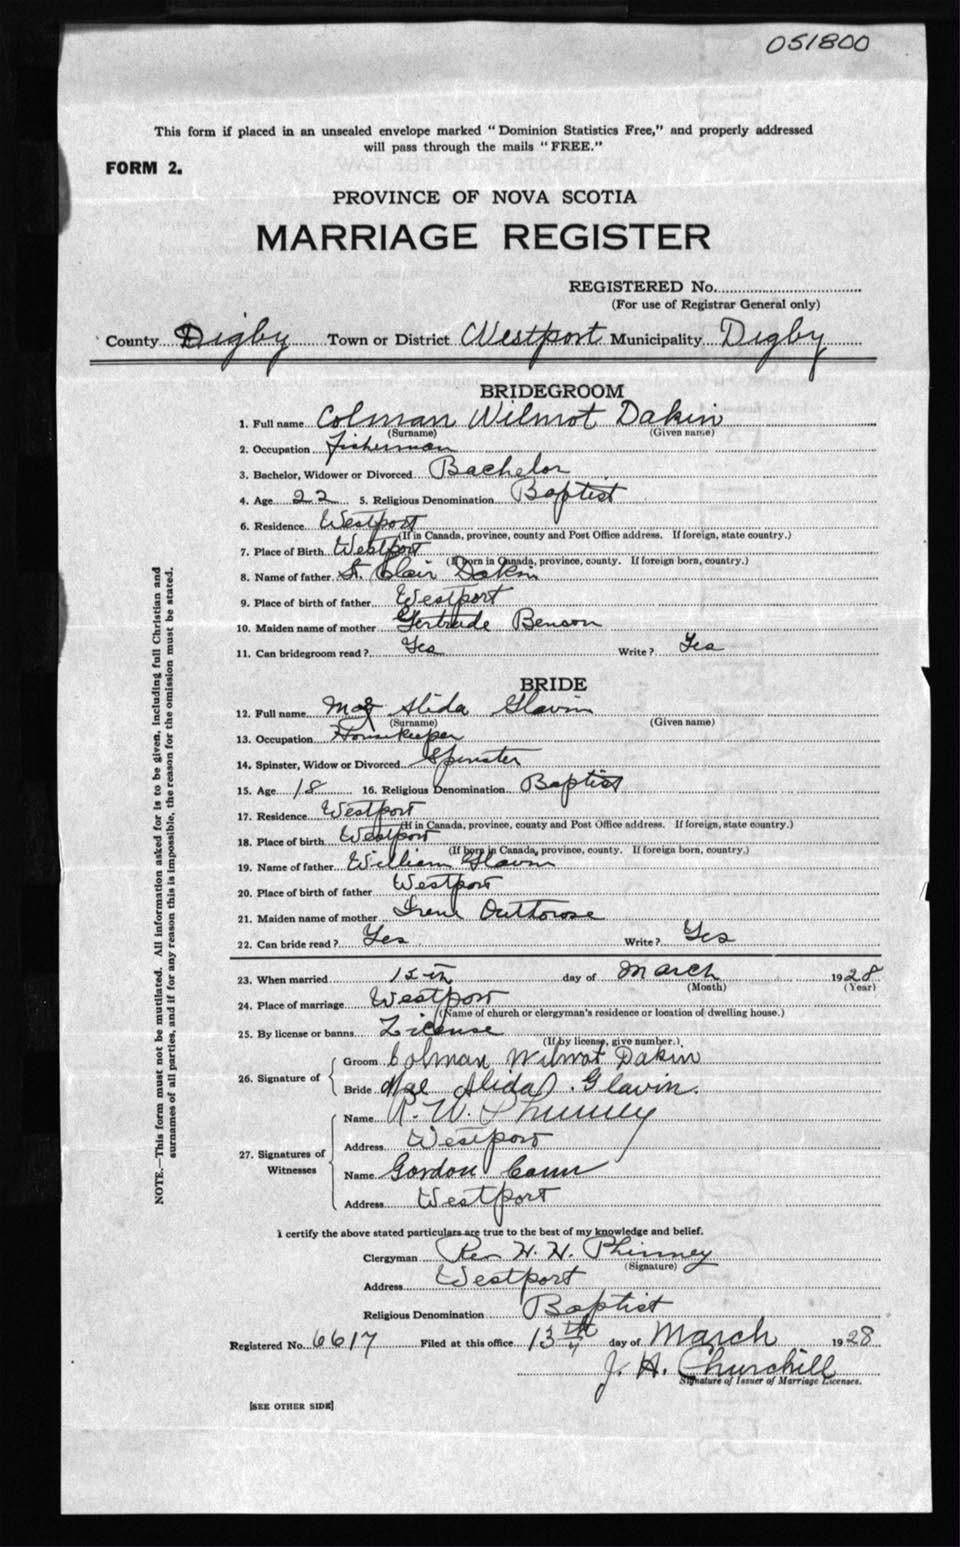 051800
This form if placed in an unsealed envelope marked "Dominion Statistics Free," and properly addressed
will pass through the mails "FREE."
FORM 2.
PROVINCE OF NOVA SCOTIA
MARRIAGE REGISTER
REGISTERED No.
(For use of Registrar General only)
County Digby Town or District Westport Municipality Digby
BRIDEGROOM
1. Full name Colman Wilmot Dakin
(Surname) (Given name)
2. Occupation fisherman
3. Bachelor, Widower or Divorced Bachelor
4. Age 22 5. Religious Denomination Baptist
6. Residence Westport
(If in Canada, province, county and Post Office address. If foreign, state country.)
7. Place of Birth Westport
(If born in Canada, province, county. If foreign born, country.)
8. Name of father St. Clair Dakin
9. Place of birth of father Westport
10. Maiden name of mother Gertrude Benson
11. Can bridegroom read? Yes Write? Yes
BRIDE
12. Full name Alida Glavin
(Surname) (Given name)
13. Occupation Housekeeper
14. Spinster, Widow or Divorced Spinster
15. Age 18 16. Religious Denomination Baptist
17. Residence Westport
(If in Canada, province, county and Post Office address. If foreign, state country.)
18. Place of birth Westport
(If born in Canada, province, county. If foreign born, country.)
19. Name of father William Glavin
20. Place of birth of father Westport
21. Maiden name of mother Irene
22. Can bride read? Yes Write? Yes
23. When married day of March 1928
(Month) (Year)
24. Place of marriage Westport
(Name of church or clergyman's residence or location of dwelling house.)
25. By license or banns License
(If by license, give number.)
26. Signature of
Groom Colman Wilmot Dakin
Bride Mae Alida Glavin.
27. Signatures of Witnesses
Name Phinney
Address Westport
Name Gordon Cann
Address Westport
I certify the above stated particulars are true to the best of my knowledge and belief.
Clergyman Rev H. H. Phinney
(Signature)
Address Westport
Religious Denomination Baptist
Registered No. 6617 Filed at this office 13th day of March 1928
J. H. Churchill
Signature of Issuer of Marriage Licenses.
[SEE OTHER SIDE]
NOTE.—This form must not be mutilated. All information asked for is to be given, including full Christian and
surnames of all parties, and if for any reason this is impossible, the reason for the omission must be stated.